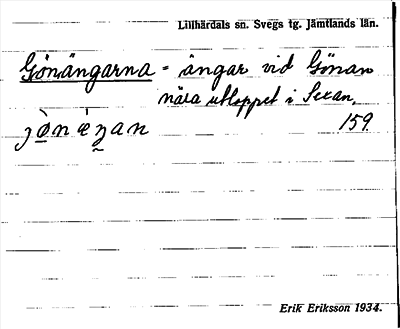 Lillhärdals sn. Svegs tg. Jämtlands län.
Gönängarna = ängar vid Gönan
nära utloppet i Sexan.
159.
Erik Eriksson 1934.